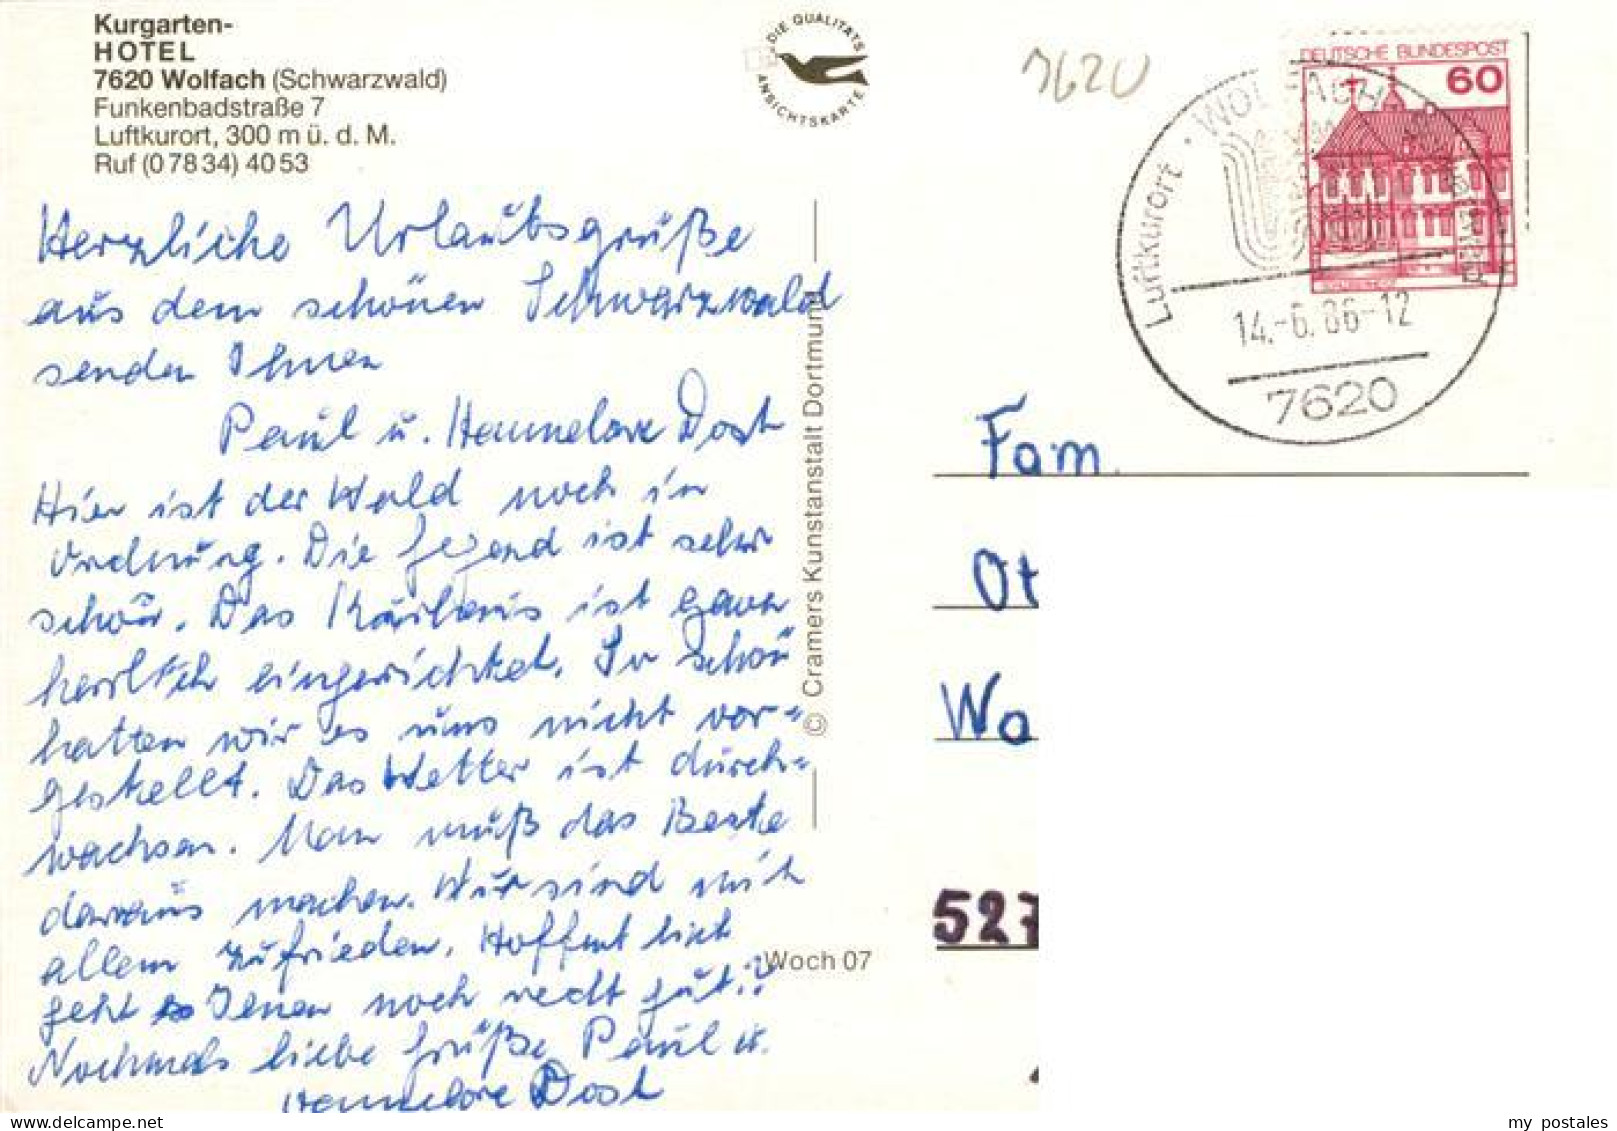 Kurgarten-
HOTEL
7620 Wolfach (Schwarzwald)
Funkenbadstraße 7
Luftkurort, 300 m ü. d. M.
Ruf (0 78 34) 40 53
DIE QUALITÄTS
ANSICHTSKARTE
7620
DEUTSCHE BUNDESPOST
60
Luftkurort · WOLFACH
14.-6.86-12
7620
Herzliche Urlaubsgrüße
aus dem schönen Schwarzwald
senden Ihnen
Paul u. Hannelore Dost
Hier ist der Wald noch in
Ordnung. Die Gegend ist sehr
schön. Das Kurhaus ist ganz
herrlich eingerichtet. So schön
hatten wir es uns nicht vor-
gestellt. Das Wetter ist durch-
wachsen. Man muß das Beste
daraus machen. Wir sind mit
allem zufrieden. Hoffentlich
geht es Ihnen noch recht gut!?
Nochmals liebe Grüße Paul u.
Hannelore Dost
© Cramers Kunstanstalt Dortmund
Woch 07
Fam.
Ot
Wa
527
my postales